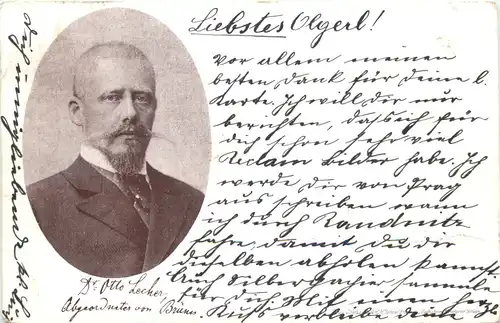 Liebstes Olgerl!
Vor allem meinen
besten Dank für deine l.
Karte. Ich will dir nur
berichten, dass ich für
dich schon sehr viel
Reclam Bilder habe. Ich
werde dir von Prag
aus schreiben wann
ich durch Raudnitz
fahre, damit du dir
dieselben abholen kannst.
Auch Silberpapier sammle
für Dich. Mit einem herzl.
Kuss verbleibe
Dr. Otto Lecher,
Abgeordneter von Brünn.